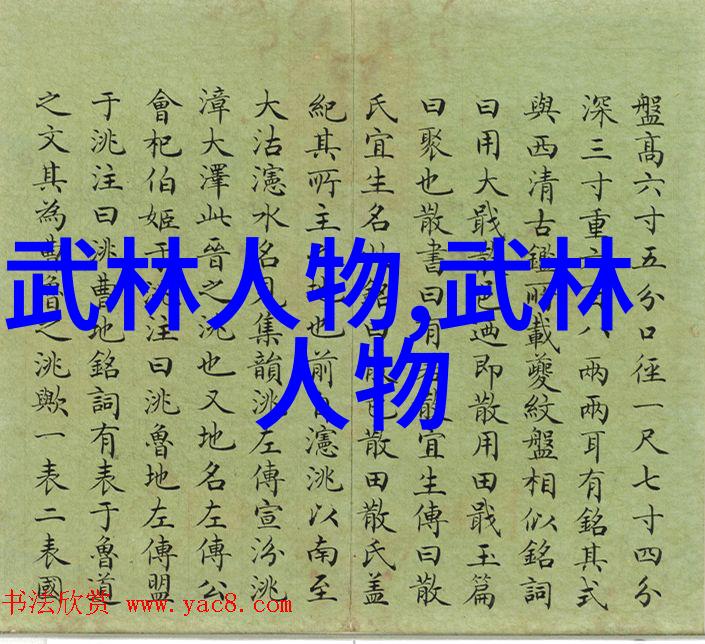 盤高六寸五分口徑一尺七寸四分
深三寸重八兩兩耳有銘其式
與西清古鑑所載夔紋盤相似銘詞
曰用大邑迺即散用田玉篇
曰聚也散書曰有散宜生傳曰散
氏宜生名銘曰散邑散田散氏蓋
紀其所主地也前曰瀗洮以南至
大沽瀗水名見集韻洮左傳宣汾洮
漳大澤此晉之洮也又地名左傳公
會杞伯姬于洮注曰洮魯地左傳盟
于洮注曰洮曹地銘詞有表于魯道
之文其為魯之洮歟一表二表國
武林人物,武林
人物
书法欣赏 www.yac8.com